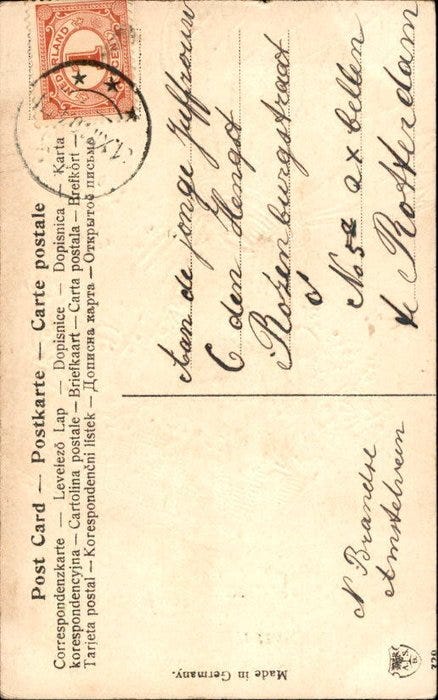 Post Card — Postkarte — Carte postale
Correspondenzkarte — Levelező Lap — Dopisnice — Dopisnica — Karta
korespondencyjna — Cartolina postale — Briefkaart — Carta postala — Brefkort —
Tarjeta postal — Korespondenční lístek — Дописна карта — Открытое письмо
NEDERLAND
1
CENT
Aan de jonge Juffrouw
C den Hengst
Rosenburgstraat
No 54 2 x bellen
te Rotterdam
N Brandse
Amstelveen
Made in Germany.